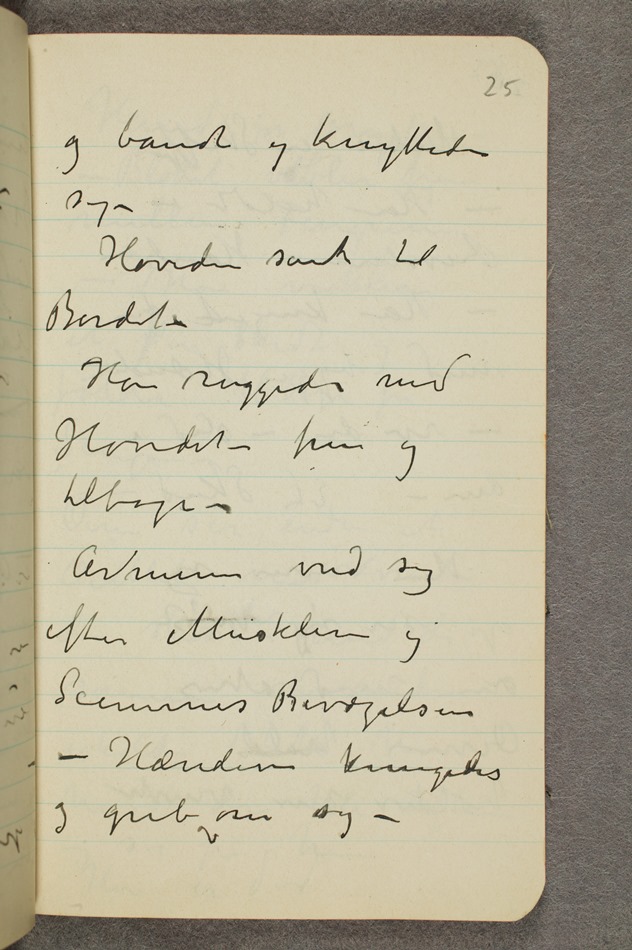 25
og bandt og knyttede
sig –
Hovedet sank til
Bordet –
Han ruggede med
Hovedet – frem og
tilbage –
Armene vred sig
efter Musklernes og
Senernes Bevægelser
– Hænderne
og greb om sig –